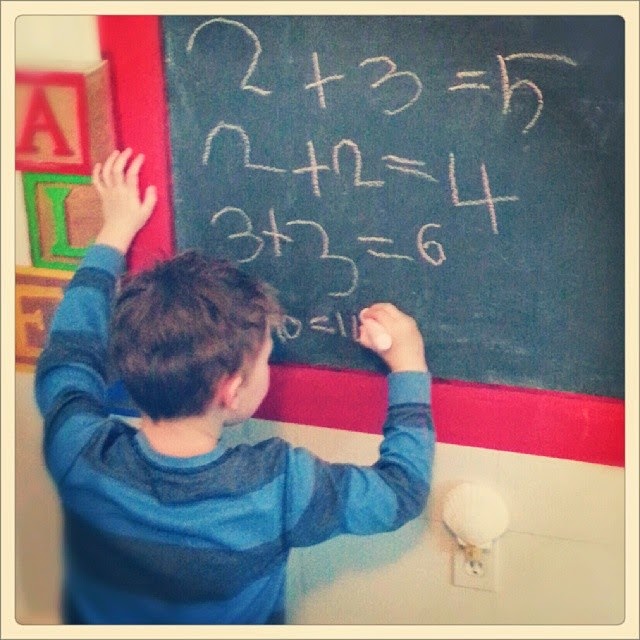 A
L
E
2+3=5
2+2=4
3+3=6
0=11